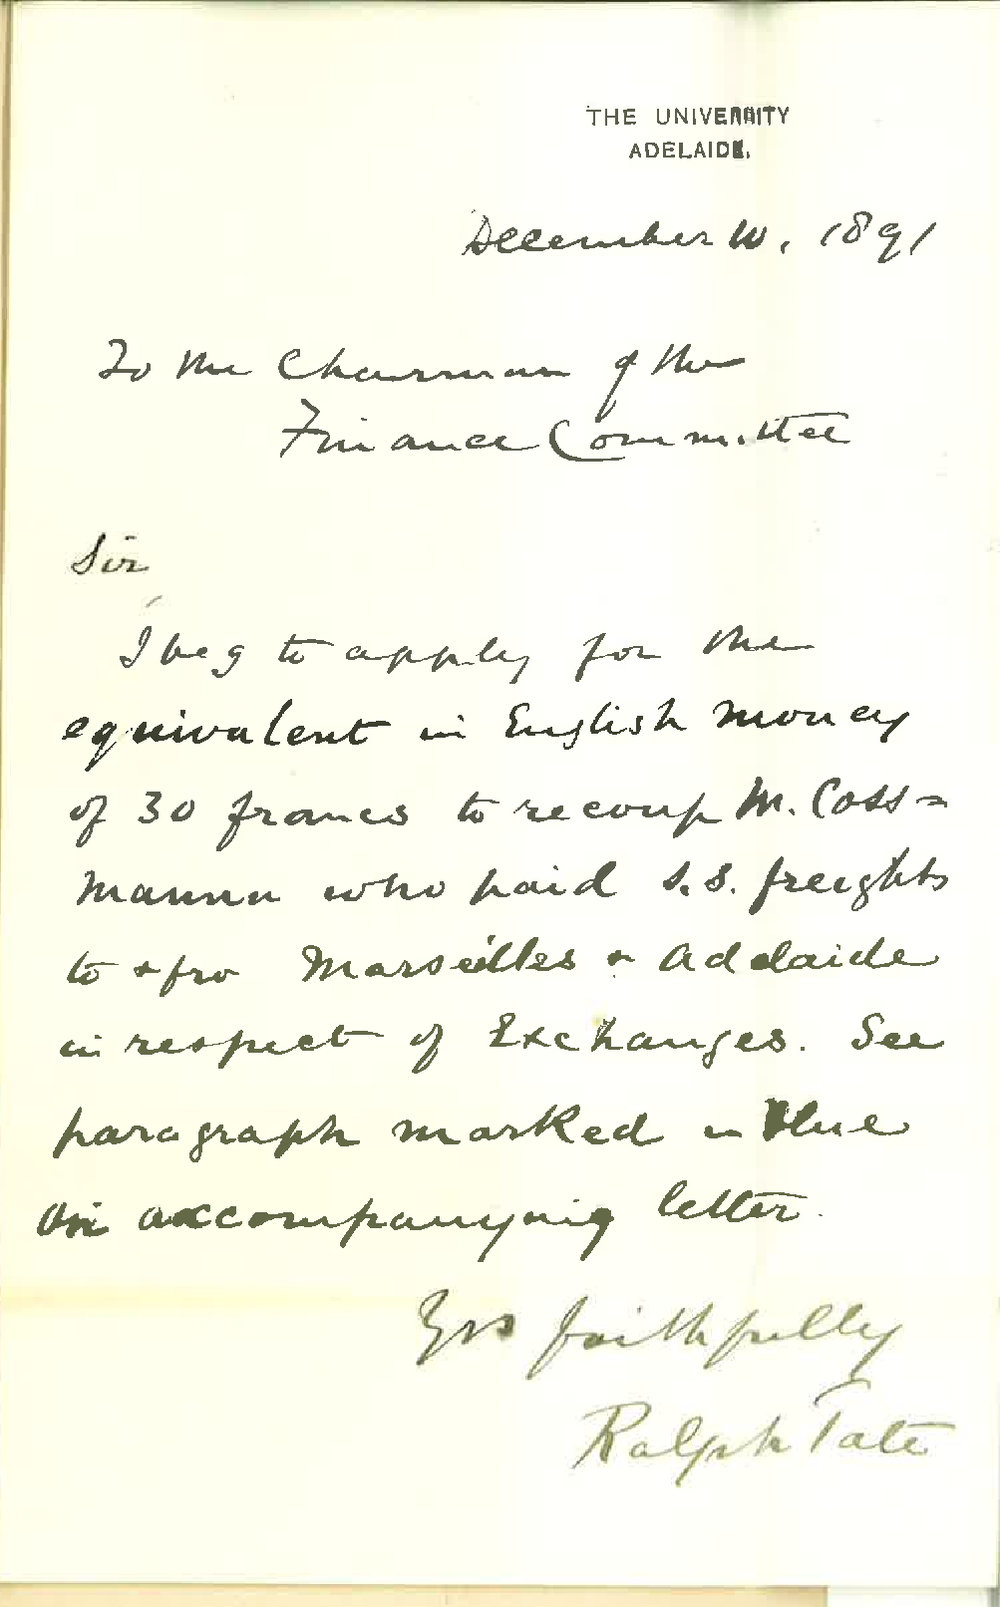 THE UNIVERSITY
ADELAIDE.
December 10, 1891
To the Chairman of the
Finance Committee
Sir
I beg to apply for the
equivalent in English money
of 30 francs to recoup M. Coss=
mann who paid s.s. freights
to & fro Marseilles & Adelaide
in respect of Exchanges. See
paragraph marked in blue
on accompanying letter.
Yrs faithfully
Ralph Tate